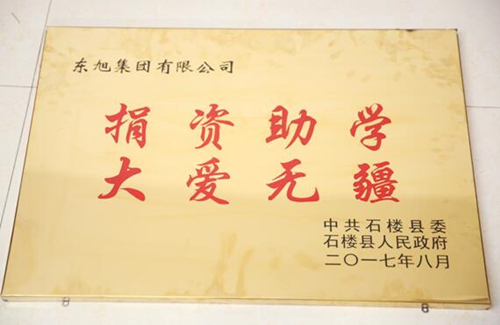 东旭集团有限公司
捐资助学
大爱无疆
中共石楼县委
石楼县人民政府
二〇一七年八月